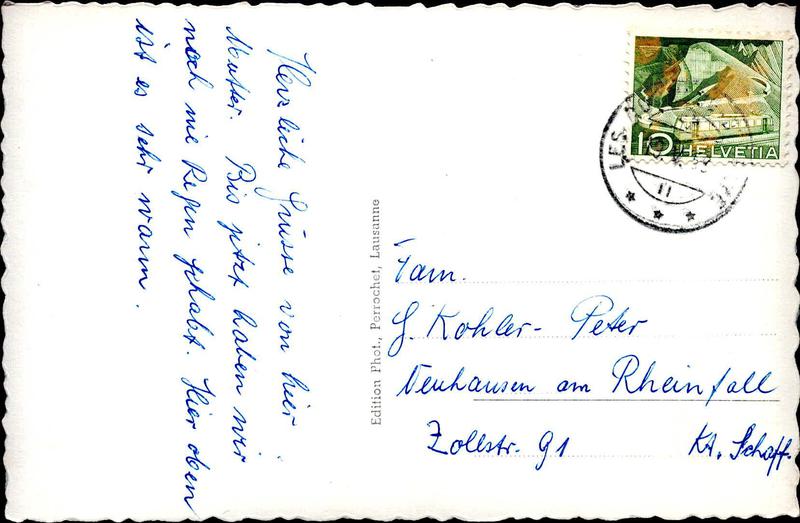 Herzliche Grüsse von hier.
Mutter. Bis jetzt haben wir
noch nie Regen gehabt. Hier oben
ist es sehr warm.
Edition Phot., Perrochet, Lausanne
10 HELVETIA
LES
11
Fam.
G. Kohler-Peter
Neuhausen am Rheinfall
Zollstr. 91 Kt. Schaff.